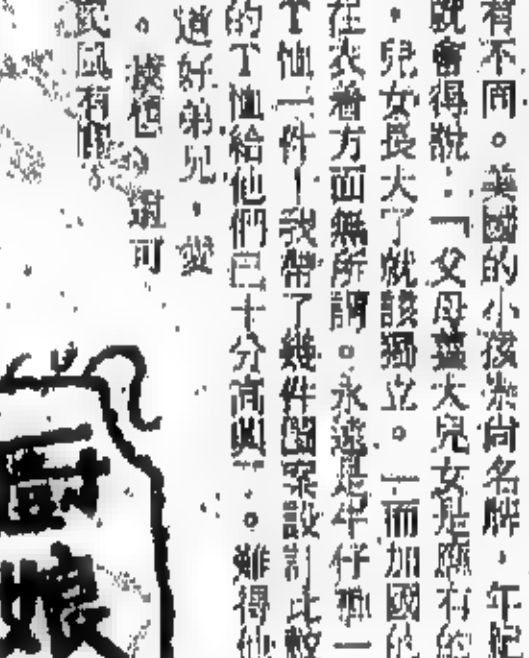 有不同。美國的小孩崇尚名牌,年紀
就會得說:「父母養大兒女是應有的
,兒女長大了就該獨立。」而加國的
在衣着方面無所謂。永遠是牛仔褲一
T恤一件!我帶了幾件圖案設計比較
的T恤給他們已十分高興。難得他
道好弟兄,愛
可
民風有關。
娘